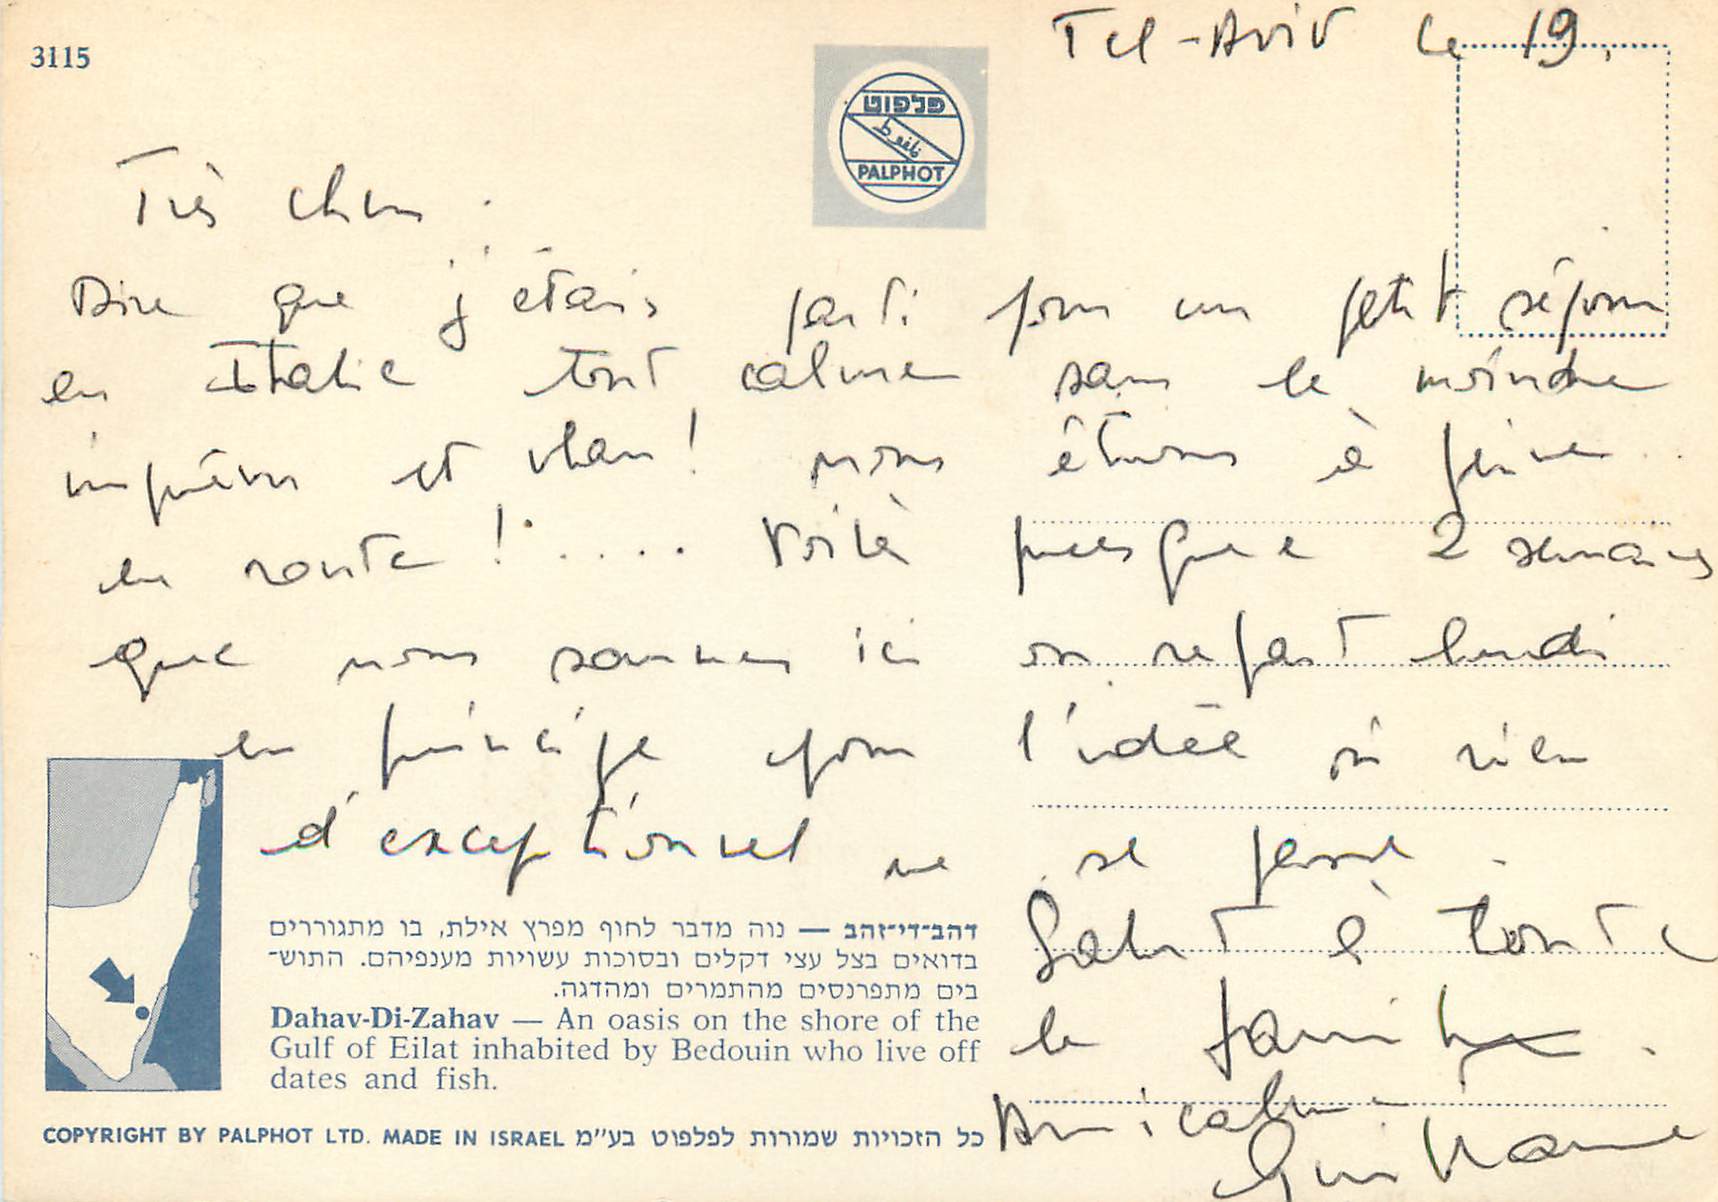 3115
Tel-Aviv le 19.
פלפוט
PALPHOT
Très chers.
Dire que j'étais parti pour un petit séjour
en Italie tout calme sans le moindre
imprévu et vlan! nous étions à peine
en route! .... Voilà presque 2 semaines
que nous sommes ici on repart lundi
en principe pour l'idée où rien
d'exceptionnel ne se passe.
Salut à toute
la famille.
Amicalement
Guillaume
דהב־די־זהב — נוה מדבר לחוף מפרץ אילת, בו מתגוררים
בדואים בצל עצי דקלים ובסוכות עשויות מענפיהם. התוש־
בים מתפרנסים מהתמרים ומהדגה.
Dahav-Di-Zahav — An oasis on the shore of the
Gulf of Eilat inhabited by Bedouin who live off
dates and fish.
COPYRIGHT BY PALPHOT LTD. MADE IN ISRAEL כל הזכויות שמורות לפלפוט בע"מ